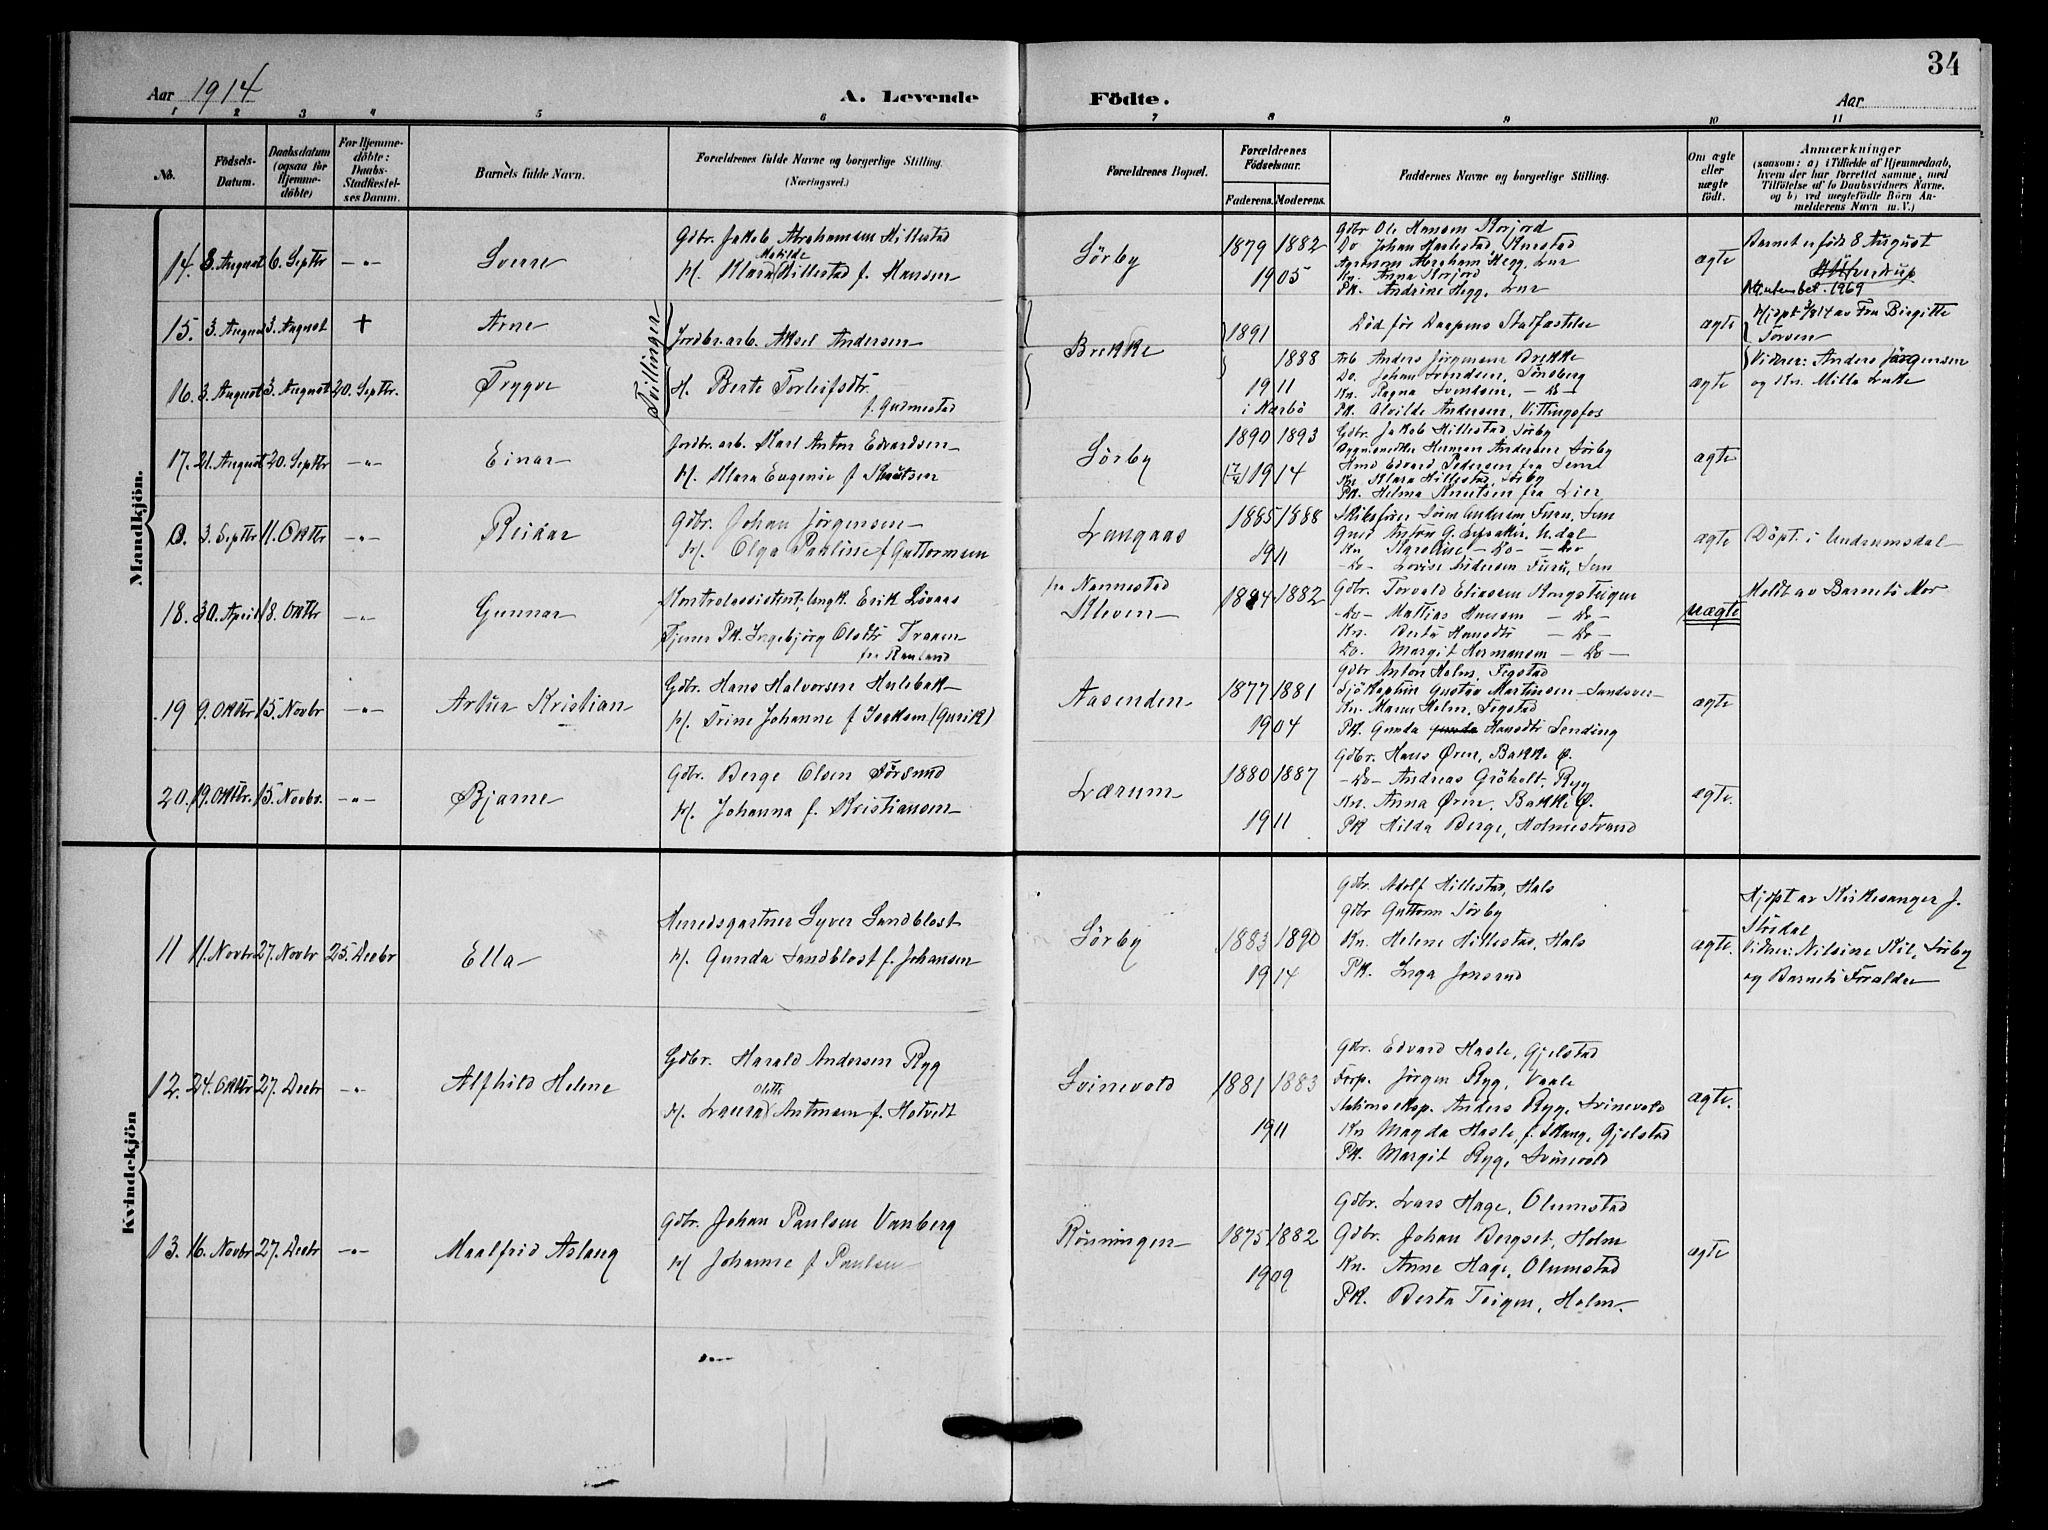 34
Aar 1914
A. Levende
Födte.
Aar
1 2 3 4 5 6 7 8 9 10 11
No.
Födsels-Datum.
Daabsdatum (ogsaa for Hjemme-döbte)
For Hjemme-döbte: Daabs-Stadfæstel-ses Datum.
Barnets fulde Navn.
Forældrenes fulde Navne og borgerlige Stilling.
(Næringsvei.)
Forældrenes Bopæl.
Forældrenes Födselsaar.
Faderens. Moderens.
Faddernes Navne og borgerlige Stilling.
Om ægte eller uægte födt.
Anmærkninger
(saasom: a) i Tilfælde af Hjemmedaab,
hvem der har forrettet samme, med
Tilföielse af to Daabsvidners Navne,
og b) ved uægtefödte Börn An-
melderens Navn m. V.)
Mandkjön.
14. 8. August 6. Septbr -"- Sverre
Gdbr. Jakob Abrahamsen Hillestad
Matilde
H. Klara Hillestad f. Hansen
Sörby
1879 1882
1905
Gdbr. Ole Hansen Storjord
Do Johan Haslestad, Knestad
Abraham Hegg, Lur
Kn. Anna Storjord
Pk. Andrine Hegg, Lur
ægte
Barnet er födt 8. August
1969
15. 3. August 3. August + Arne
Tvillinger
Jordbr.arb. Aksel Andersen
Brekke
1891
Död før Daapens Stadfæstelse
ægte
Hjdpt 3/8 14 av Fru Birgitte
Torsen
16. 3. August 3. August 20. Septbr. Trygve
H. Berte Torleifsdtr.
f. Gudmestad
1888
1911
i Nærbö
Arb. Anders Jörgensen Brekke
Do. Johan Svendsen, Tönsberg
Kn. Ragna Svendsen, - Do -
Pk. Alvilde Andersen, Vittingsfos
ægte
Vidner: Anders Jörgensen
og Kn. Milla
17. 21. August 20. Septbr -"- Einar
Jordbr.arb. Karl Anton Edvardsen
H. Klara Eugenie f Knutsen
Sörby
1890 1893
1914
Gdbr. Jakob Hillestad, Sörby
Herman Andersen Sörby
Edvard Pedersen fra Sem
Kn Klara Hillestad, Sörby
Pk. Helma Knutsen fra Lier
ægte
0. 3. Septbr 11. Oktbr -"- Reidar
Gdbr. Johan Jörgensen
H. Olga Pauline f Guttormsen
Langaas
1885 1888
1911
Sören Andersen Furu, Sem
Anton G. U.dal
Kn Karoline - Do - Do
- Do - Lovise Andersen Furu, Sem
ægte
Döpt. i Undrumsdal
18. 30. April 18. Oktbr -"- Gunnar
Kontrolassistent, ungk. Erik Lövaas
Tjener Pk. Ingebjörg Olsdtr Traaen
fra Rauland
fra Nannestad
Kleven
1884 1882
Gdbr. Torvald Eliasen Kongsteigen
- Do - Mattias Hansen - Do -
Kn. Berta Hansdtr - Do -
Do. Margit Hermansen - Do -
uægte
Meldt av Barnets Mor
19 9. Oktbr 15. Novbr -"- Artur Kristian
Gdbr. Hans Halvorsen Hulebak
H. Trine Johanne f Isaksen (Gurik)
Aasenden
1877 1881
1904
Gdbr Anton Holm, Fegstad
Sjökaptein Gustav Martinsen Sandsver
Kn. Marie Holm, Fegstad
Pk. Gunda Hansdtr Sending
ægte
20. 19. Oktbr. 15. Novbr. -"- Bjarne
Gdbr. Berge Olsen Sörsund
H. Johanna f. Kristiansen
Lærum
1880 1887
1911
Gdbr. Hans Ören, Bakke Ö.
- Do - Andreas Gröholt, Ryg
Kn. Anna Ören, Bakke Ö.
Pk Hilda Berge, Holmestrand
ægte.
Kvindekjön
11 11. Novbr 27. Novbr 25. Decbr Ella
Herredsgartner Syver Sandblost
H. Gunda Sandblost f. Johansen
Sörby
1883 1890
1914
Gdbr. Adolf Hillestad, Hals
Gdbr Guttorm Sörby
Kn. Helene Hillestad, Hals
Pk. Inga Jonsrud
ægte.
Hjdpt av Kirkesanger J.
Stusdal
Vidner: Nilsine Kil, Sörby
og Barnets Forældre
12. 24. Oktbr 27. Decbr -"- Alfhild Helene
Gdbr. Harald Andersen Ryg
Olette
H. Laura Antonsen f. Hotvedt
Svinevold
1881 1883
1911
Gdbr. Edvard Hasle, Gjelstad
Forp. Jörgen Ryg, Vaale
Stationseksp. Anders Ryg, Svinevold
Kn Magda Hasle, f. Skaug, Gjelstad
Pk. Margit Ryg, Svinevold
ægte.
13. 16. Novbr 27. Decbr -"- Maalfrid Aslaug
Gdbr. Johan Paulsen Vanberg
H Johanne f Paulsen
Rönningen
1875 1882
1909
Gdbr. Lars Hage, Olumstad
Gdbr. Johan Bergset, Holm
Kn. Anne Hage, Olumstad
Pk. Berta Teigen, Holm.
ægte